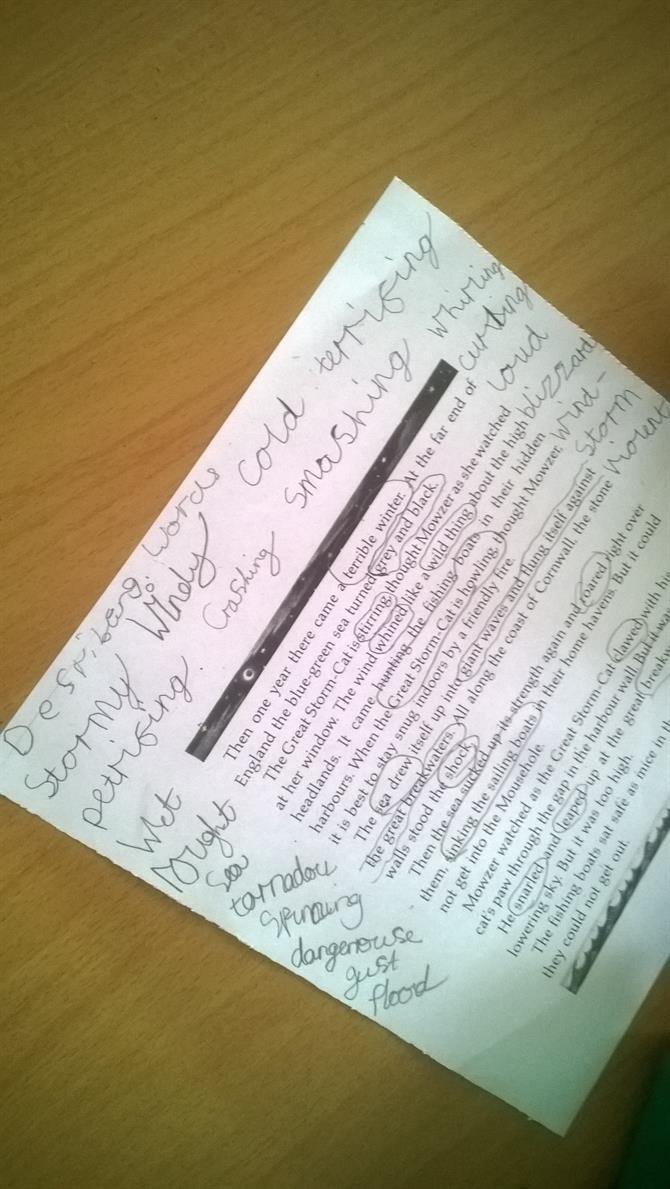 Despribeng words
Stormy Windy cold terrifing
petrifing crashing smashing whiring
curling
loud
blizzard
wind-
storm
violent
Wet
rought
sea
tarnadou
spinning
dangerouse
gust
flood
Then one year there came a terrible winter. At the far end of
England the blue-green sea turned grey and black.
The Great Storm-Cat is stirring, thought Mowzer as she watched
at her window. The wind whined like a wild thing about the high
headlands. It came hunting the fishing boats in their hidden
harbours. When the Great Storm-Cat is howling, thought Mowzer,
it is best to stay snug indoors by a friendly fire.
The sea drew itself up into giant waves and flung itself against
the great breakwaters. All along the coast of Cornwall, the stone
walls stood the shock.
Then the sea sucked up its strength again and roared right over
them, sinking the sailing boats in their home havens. But it could
not get into the Mousehole.
Mowzer watched as the Great Storm-Cat clawed with his
cat's paw through the gap in the harbour wall. But it was
He snarled and leaped up at the great
lowering sky. But it was too high.
The fishing boats sat safe as mice in
they could not get out.